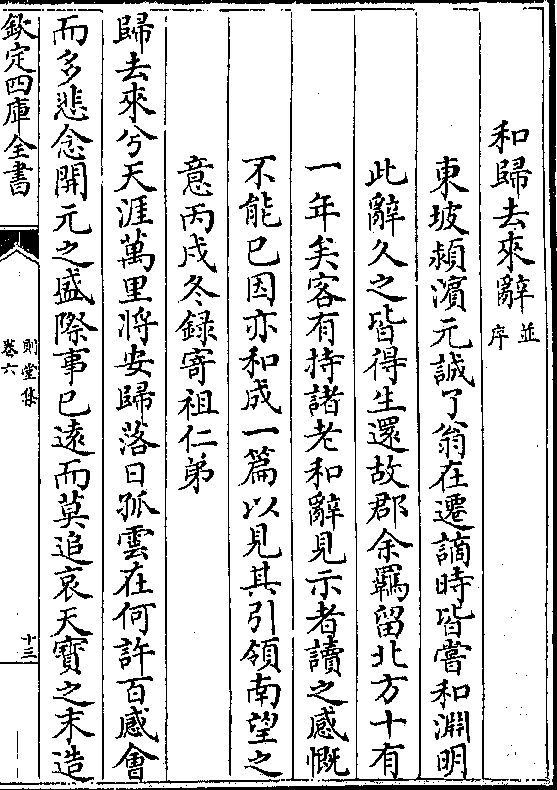 和歸去來辭並序
東坡潁濵元誠了翁在遷謫時皆嘗和淵明
此辭久之皆得生還故郡余羈留北方十有
一年矣客有持諸老和辭見示者讀之感慨
不能已因亦和成一篇以見其引領南望之
意丙戌冬録寄祖仁弟
歸去來兮天涯萬里將安歸落日孤雲在何許百感會
而多悲念開元之盛際事已遠而莫追哀天寶之末造
欽定四庫全書
則堂集
卷六
十三